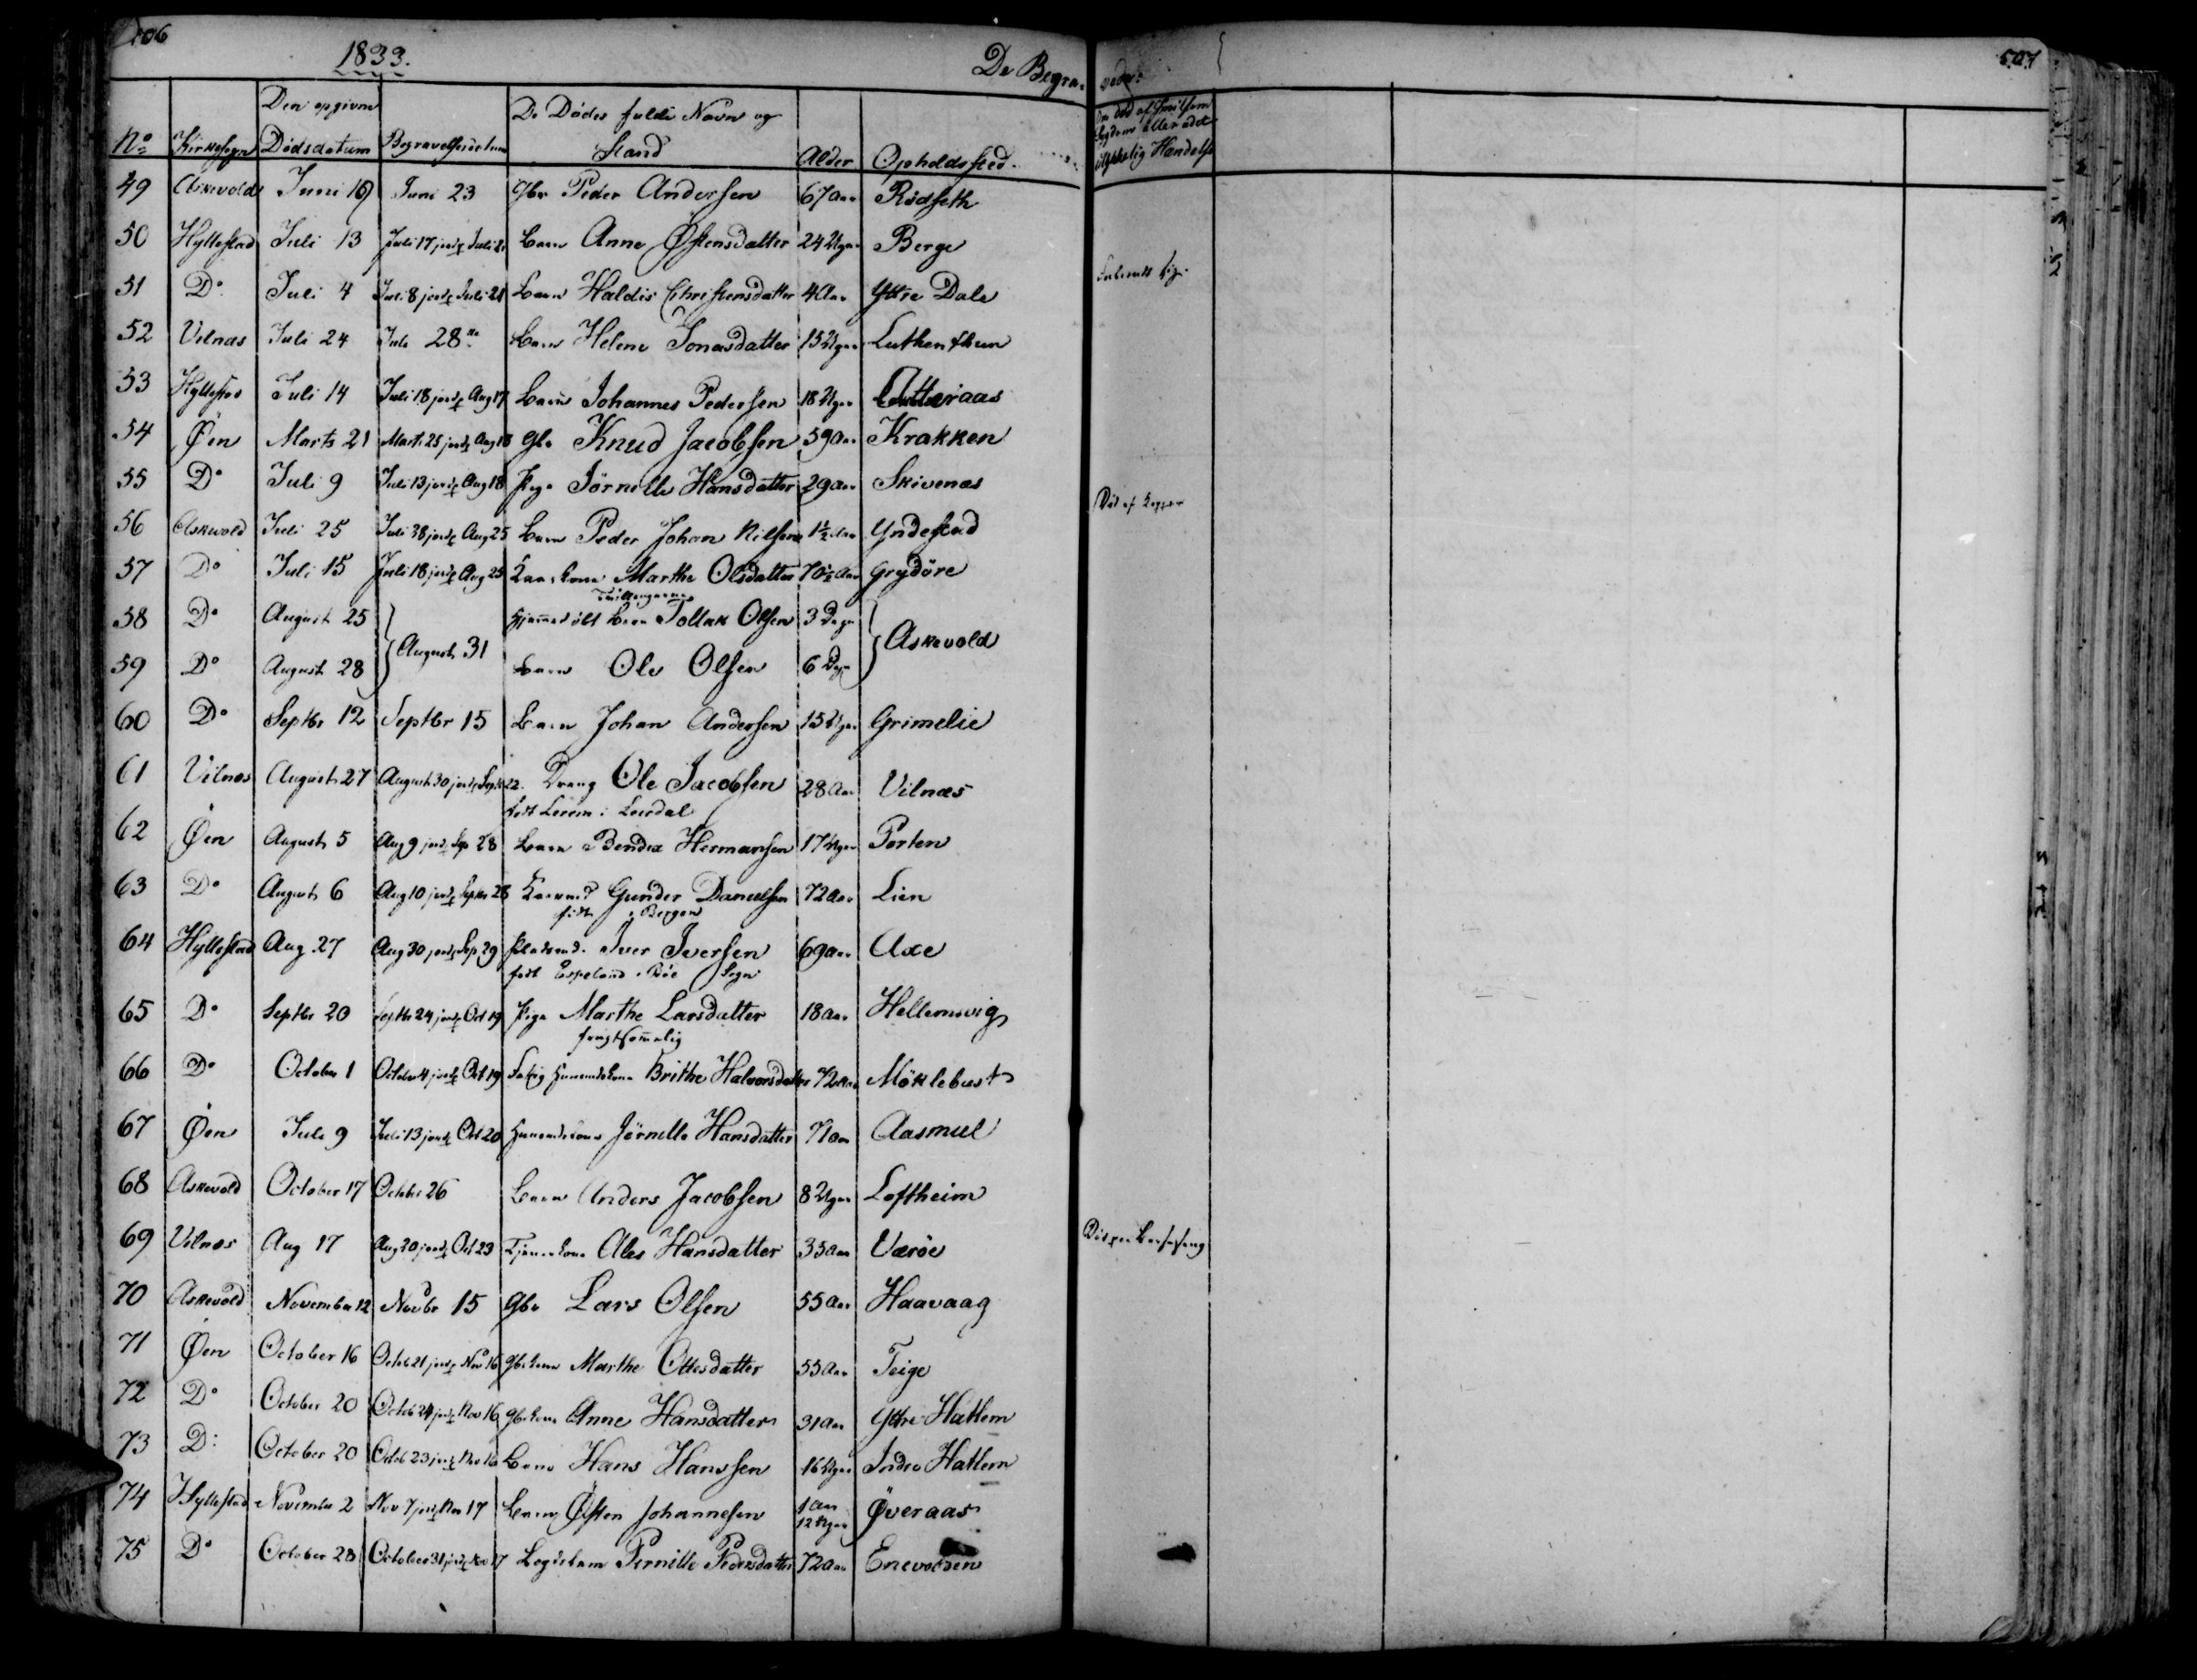 506
1833.
De Begra-
vede:
507
No Kirkesogn Den opgivne Dødsdatum Begravelsesdatum De Dødes fulde Navn og Stand Alder Opholdssted
49 Askevold Juni 16 Juni 23 Gbr Peder Andersen 67 Aar Rødseth
50 Hyllestad Juli 13 Juli 17 jordf Juli 21 Barn Anne Østensdatter 24 Uger Berge
51 Do Juli 4 Juli 8 jordf Juli 21 Barn Haldis Christensdatter 4 Aar Yttre Dale
52 Vilnæs Juli 24 Juli 28 Barn Helene Jonasdatter 15 Uger Luthentun
53 Hyllestad Juli 14 Juli 18 jordf Aug 17 Barn Johannes Pedersen 18 Uger
54 Øen Marts 21 Marts 25 jordf Aug 18 Gbr Knud Jacobsen 59 Aar Krakken
55 Do Juli 9 Juli 13 jordf Aug 18 Pige Jørnille Hansdatter 29 Aar Skivenæs
56 Askevold Juli 25 Juli 28 jordf Aug 25 Barn Peder Johan Nilsen 1½ Aar Yndestad
57 Do Juli 15 Juli 18 jordf Aug 25 Kaarkone Marthe Olsdatter 70½ Aar Grydøre
Tvillingerne
58 Do August 25 Hjemmedøbt Barn Tollak Olsen 3 Dage
August 31 Askevold
59 Do August 28 Barn Ole Olsen 6 Dage
60 Do Septbr 12 Septbr 15 Barn Johan Andersen 15 Uger Grimelie
61 Vilnæs August 27 August 30 jordf Sept 22 Dreng Ole Jacobsen 28 Aar Vilnæs
62 Øen August 5 Aug 9 jordf Sep 28 Barn Bendix Hermansen 17 Uger Porten
63 Do August 6 Aug 10 jordf Septbr 28 Kaarmd Gunder Danielsen 72 Aar Lien
født i Bergen
64 Hyllestad Aug 27 Aug 30 jordf Sep 29 Iver Iversen 69 Aar Axe
født Espeland Sogn
65 Do Septbr 20 Septbr 24 jordf Oct 19 Pige Marthe Larsdatter 18 Aar Hellemvig
frugtsommelig
66 Do October 1 October 4 jordf Oct 19 Fattig Huusmdskone Brithe Halvorsdatter 72 Aar Møklebust
67 Øen Juli 9 Juli 13 jordf Oct 20 Huusmdskone Jørnille Hansdatter 71 Aar Aasmul
68 Askevold October 17 October 26 Barn Anders Jacobsen 8 Uger Loftheim
69 Vilnæs Aug 17 Aug 20 jordf Oct 29 Ales Hansdatter 35 Aar Værøe
70 Askevold November 12 Novbr 15 Gbr Lars Olsen 55 Aar Haavaag
71 Øen October 16 Octob 21 jordf Nov 16 Gbrkone Marthe Ottesdatter 55 Aar Teige
72 Do October 20 Octob 24 jordf Nov 16 Gbrkone Anne Hansdatter 31 Aar Yttre Hatlem
73 Do October 20 Octob 23 jordf Nov 16 Barn Hans Hanssen 16 Uger Indre Hatlem
74 Hyllestad November 2 Nov 7 jordf Nov 17 Barn Østen Johannesen 1 Aar 12 Uger Øveraas
75 Do October 28 October 31 jordf Nov 17 Legdelem Pernille Pedersdatter 72 Aar Enevolden